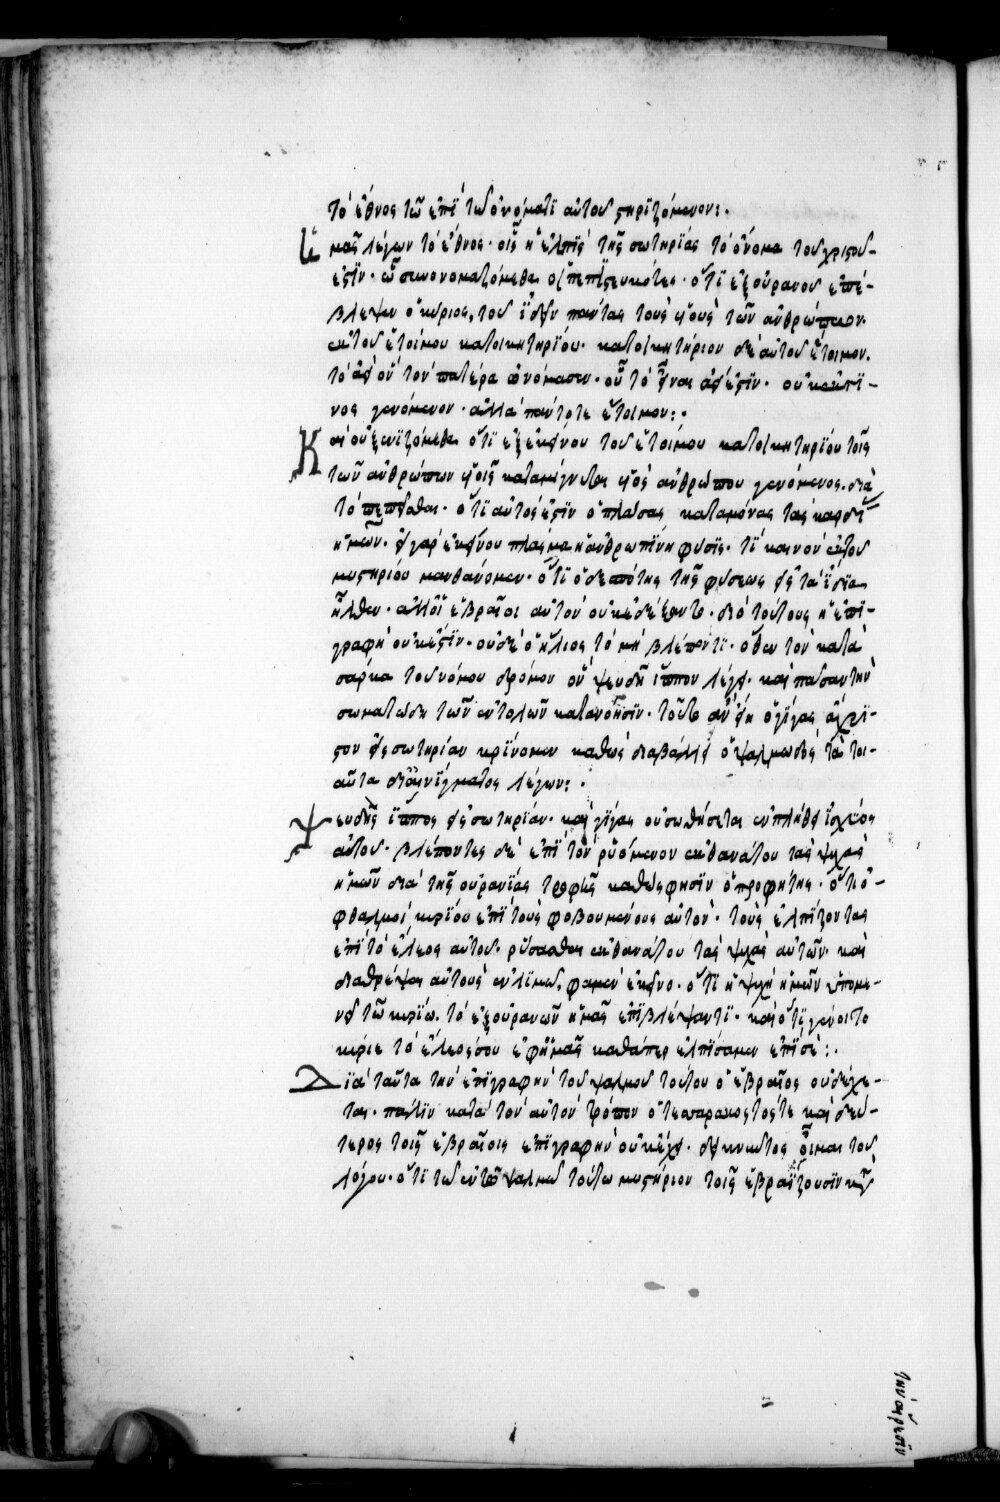 τὸ ἔθνος τῶ ἐπὶ τῶ ὀνόματι αὐτοῦ στηριζόμενον:.
μᾶς λέγων τὸ ἔθνος· οἷς ἡ ἐλπὶς τῆς σωτηρίας τὸ ὄνομα τοῦ χριστοῦ
ἐστὶν· ὧ συνονομαζόμεθα οἱ πεπιστευκότες· ὅτι ἐξ οὐρανοῦ ἐπέ-
βλεψεν ὁ κύριος, τοῦ ἰδεῖν πάντας τοὺς υἱοὺς τῶν ἀνθρώπων.
ἐκ τοῦ ἑτοίμου κατοικητηρίου· κατοικητήριον δὲ αὐτοῦ ἕτοιμον.
τὸ ἀφ' οὗ τὸν πατέρα ὠνόμασεν· οὗ τὸ εἶναι ἀεί ἐστιν· οὐκ
νος γενόμενον· ἀλλὰ πάντοτε ἕτοιμον:.
Καὶ οὐ ξενιζόμεθα ὅτι ἐξ ἐκείνου τοῦ ἑτοίμου κατοικητηρίου τοῖς
τῶν ἀνθρώπων υἱοῖς καταμίγνυται υἱὸς ἀνθρώπου γενόμενος· διὰ
τὸ πεπεῖσθαι· ὅτι αὐτός ἐστιν ὁ πλάσας καταμόνας τὰς καρδί
ἡμῶν· εἰ γὰρ ἐκείνου πλάσμα ἡ ἀνθρωπίνη φύσις· τί καινὸν ἐκ τοῦ
μυστηρίου μανθάνομεν· ὅτι ὁ δεσπότης τῆς φύσεως εἰς τὰ ἴδια
ἦλθεν· ἀλλ' οἱ ἑβραῖοι αὐτὸν οὐκ ἐδέξαντο· διὸ τούτοις ἡ ἐπι-
γραφὴ οὐκ ἔστιν· οὐδὲ ὁ ἥλιος τῶ μὴ βλέποντι· ὅθεν τὸν κατὰ
σάρκα τοῦ νόμου δρόμον οὐ ψευδῆ ἵππον λέγει· καὶ πᾶσαν τὴν
σωματώδη τῶν ἐντολῶν κατανόησιν· τοῦτο ἂν εἴη ὁ γίγας ἄχρι-
στον εἰς σωτηρίαν κρίνομεν καθὼς διαβάλλει ὁ ψαλμωδὸς τὰ τοι-
αῦτα δι' αἰνίγματος λέγων:.
Ψευδὴς ἵππος εἰς σωτηρίαν· καὶ γίγας οὐ σωθήσεται ἐν πλήθει ἰσχύος
αὐτοῦ· βλέποντες δὲ ἐπὶ τὸν ῥυόμενον ἐκ θανάτου τὰς ψυχὰς
ἡμῶν διὰ τῆς οὐρανίας τροφῆς καθώς φησιν ὁ προφήτης· ὅτι ὀ-
φθαλμοὶ κυρίου ἐπὶ τοὺς φοβουμένους αὐτὸν· τοὺς ἐλπίζοντας
ἐπὶ τὸ ἔλεος αὐτοῦ· ῥύσασθαι ἐκ θανάτου τὰς ψυχὰς αὐτῶν· καὶ
διαθρέψαι αὐτοὺς ἐν λιμῶ, φαμὲν ἐκεῖνο· ὅτι ἡ ψυχὴ ἡμῶν ὑπομέ-
νει τῶ κυρίω. τὸ ἐξ οὐρανῶν ἡμᾶς ἐπιβλέψαντι· καὶ ὅτι γένοιτο
κύριε τὸ ἔλεός σου ἐφ' ἡμᾶς καθάπερ ἐλπίσαμεν ἐπὶ σέ:.
Διὰ ταῦτα τὴν ἐπιγραφὴν τοῦ ψαλμοῦ τούτου ὁ ἑβραῖος οὐ δέχε-
ται· πάλιν κατὰ τὸν αὐτὸν τρόπον ὁ τεσσαρακοστός τε καὶ δεύ-
τερος τοῖς ἑβραίοις ἐπιγραφὴν οὐκ ἔχει· δεικνύντος οἶμαι τοῦ
λόγου· ὅτι τὸ ἐν τῶ ψαλμῶ τούτω μυστήριον τοῖς ἑβραΐζουσιν